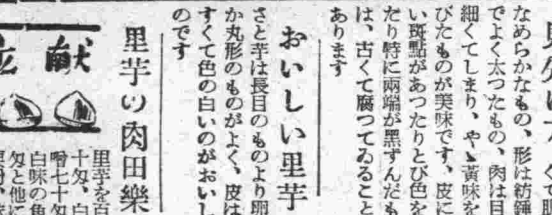 なめらかなもの、形は紡錘
でよく太つたもの、肉は目
細くてしまり、やゝ黄味を
びたものが美味です、皮に
い斑點があつたりとび色を
たり特に兩端が黑ずんだも
は、古くて腐つてゐること
あります
おいしい里芋
さと芋は長目のものより卵
か丸形のものがよく、皮は
すくて色の白いのがおいし
のです
里芋の肉田樂
献立
里芋を百
十匁、白
噌七十匁
白味の角
匁と他に